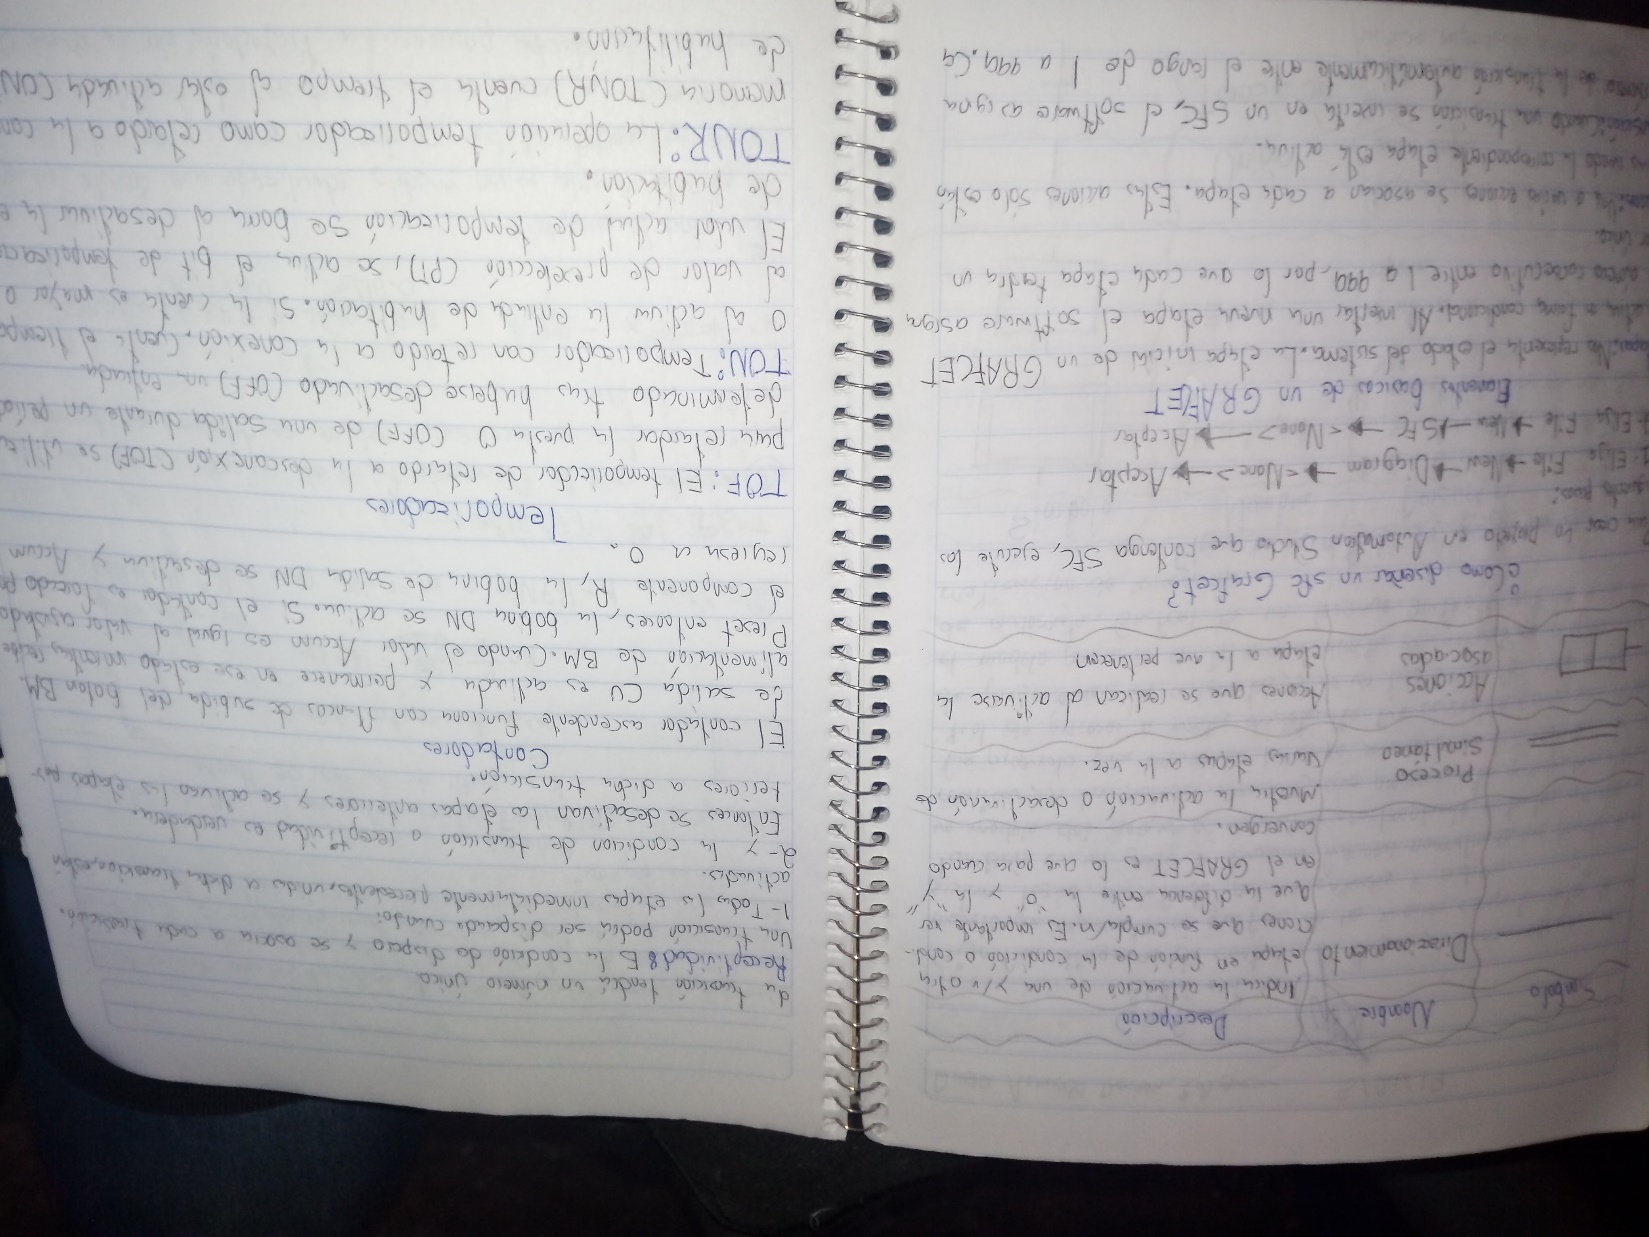 Símbolo Nombre Descripción
Indica la activación de una y/u otra
Direccionamiento etapa en función de la condición o condi-
ciones que se cumpla/n. Es importante ver
que la diferencia entre la "o" y la "y"
en el GRAFCET es lo que pasa cuando
convergen.
Proceso Muestra la activación o desactivación de
Simultáneo varias etapas a la vez.
Acciones Acciones que se realizan al activarse la
asociadas etapa a la que pertenecen
¿Como diseñar un sfc Grafcet?
un proyecto en Automation Studio que contenga SFC, ejecute los
pasos:
Elija File → New → Diagram → <None> → Aceptar
Elija File → New → SFC → <None> → Aceptar
Elementos basicos de un GRAFCET
representa el estado del sistema. La etapa inicial de un GRAFCET
condicional. Al insertar una nueva etapa el software asigna
consecutivo entre 1 a 999, por lo que cada etapa tendra un
único.
o varias acciones se asocian a cada etapa. Estas acciones sólo están
cuando la correspondiente etapa está activa.
cuando una transición se inserta en un SFC, el software asigna
de la transición automáticamente entre el rango de 1 a 999. Ca
da transición tendrá un número único
Receptividad: Es la condición de disparo y se asocia a cada transición.
Una transición podrá ser disparada cuando:
1- Todas las etapas inmediatamente precedentes, unidas a dicha transicion, están
activadas.
2- y la condicion de transición a receptividad es verdadera.
Entonces se desactivan las etapas anteriores y se activan las etapas pos-
teriores a dicha transición.
Contadores
El contador ascendente funciona con flancos de subida del boton BM.
de salida CU es activada y permanece en ese estado mientras recibe
alimentación de BM. Cuando el valor Accum es igual al valor ajustado
Preset entonces, la bobina DN se activa. Si el contador es forzado por
el componente R, la bobina de salida DN se desactiva y Accum
regresa a 0.
Temporizadores
TOF: El temporizador de retardo a la desconexión (TOF) se utiliza
para retardar la puesta a 0 (OFF) de una salida durante un período
determinado tras haberse desactivado (OFF) una entrada
TON: Temporizador con retardo a la conexión. Cuenta el tiempo
al activar la entrada de habitación. Si la cuenta es mayor o
al valor de preselección (PT), se activa el bit de temporización
El valor actual de temporización se borra al desactivar la e
de habitación.
TONR: La operación temporizador como retardo a la con
memoria (TONR) cuenta el tiempo al estar activada (ON)
de habilitación.